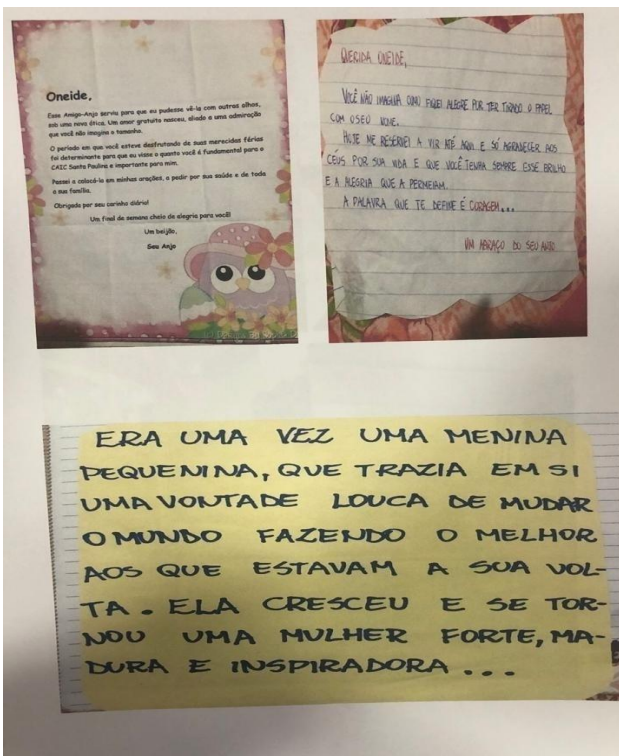 Oneide,
Esse Amigo-Anjo serviu para que eu pudesse vê-la com outros olhos,
sob uma nova ótica. Um amor gratuito nasceu, aliado a uma admiração
que você não imagina o tamanho.
O período em que você esteve desfrutando de suas merecidas férias
foi determinante para que eu visse o quanto você é fundamental para o
CAIC Santa Paulina e importante para mim.
Passei a colocá-la em minhas orações, a pedir por sua saúde e de toda
a sua família.
Obrigada por seu carinho diário!
Um final de semana cheio de alegria para você!
Um beijão,
Seu Anjo
QUERIDA ONEIDE,
VOCÊ NÃO IMAGINA COMO FIQUEI ALEGRE POR TER TIRADO O PAPEL
COM O SEU NOME.
HOJE ME RESERVEI A VIR ATÉ AQUI E SÓ AGRADECER AOS
CÉUS POR SUA VIDA E QUE VOCÊ TENHA SEMPRE ESSE BRILHO
E A ALEGRIA QUE A PERMEIAM.
A PALAVRA QUE TE DEFINE É CORAGEM...
UM ABRAÇO DO SEU ANJO
ERA UMA VEZ UMA MENINA
PEQUENINA, QUE TRAZIA EM SI
UMA VONTADE LOUCA DE MUDAR
O MUNDO FAZENDO O MELHOR
AOS QUE ESTAVAM A SUA VOL-
TA. ELA CRESCEU E SE TOR-
NOU UMA MULHER FORTE, MA-
DURA E INSPIRADORA...